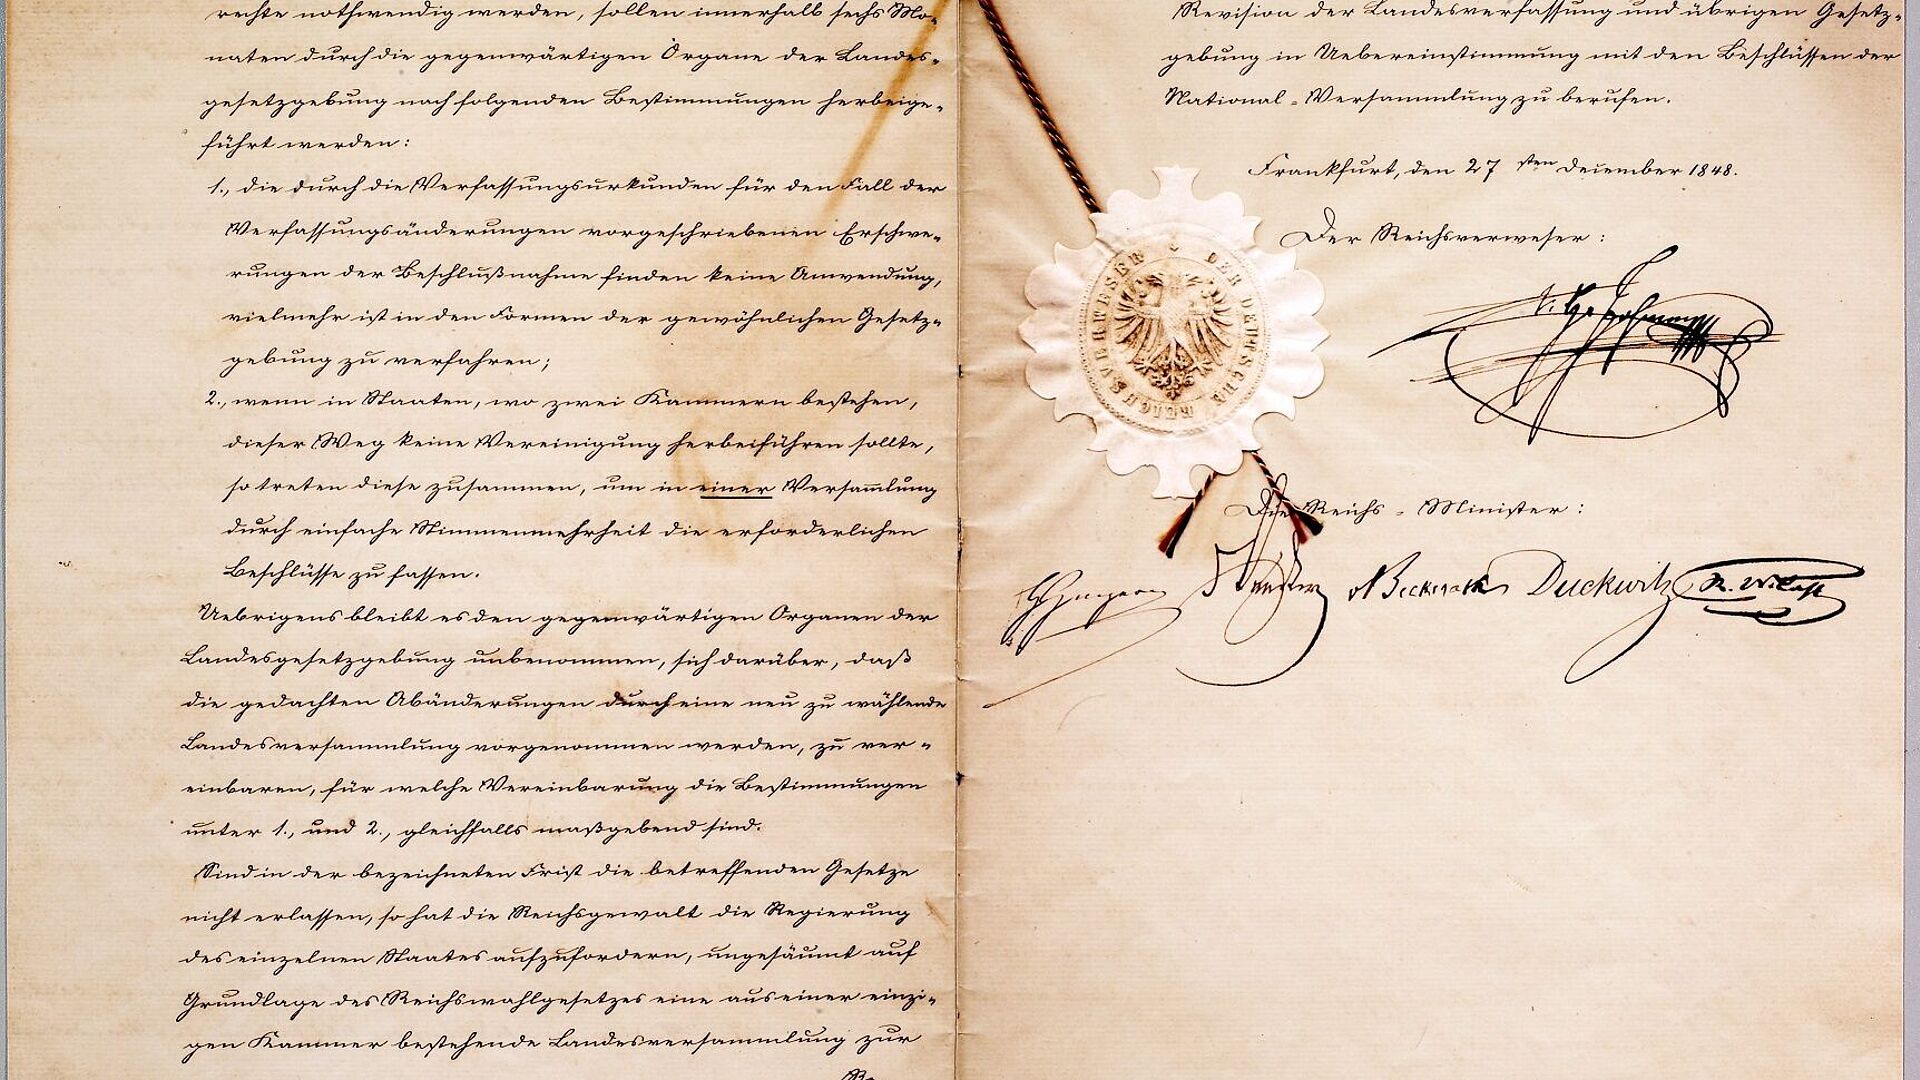 rechte nothwendig werden, sollen innerhalb sechs Mo-
naten durch die gegenwärtigen Organe der Landes-
gesetzgebung nach folgenden Bestimmungen herbeige-
führt werden:
1., die durch die Verfassungsurkunden für den Fall der
Verfassungsänderungen vorgeschriebenen Erschwe-
rungen der Beschlußnahme finden keine Anwendung,
vielmehr ist in den Formen der gewöhnlichen Gesetz-
gebung zu verfahren;
2., wenn in Staaten, wo zwei Kammern bestehen,
dieser Weg keine Vereinigung herbeiführen sollte,
so treten diese zusammen, um in einer Versam̅lung
durch einfache Stimmenmehrheit die erforderlichen
Beschlüsse zu fassen.
Uebrigens bleibt es den gegenwärtigen Organen der
Landesgesetzgebung unbenommen, sich darüber, daß
die gedachten Abänderungen durch eine neu zu wählende
Landesversammlung vorgenommen werden, zu ver-
einbaren, für welche Vereinbarung die Bestimmungen
unter 1., und 2., gleichfalls maßgebend sind.
Sind in der bezeichneten Frist die betreffenden Gesetze
nicht erlassen, so hat die Reichsgewalt die Regierung
des einzelnen Staates aufzufordern, ungesäumt auf
Grundlage des Reichswahlgesetzes eine aus einer einzi-
gen Kammer bestehende Landesversammlung zur
Re-
Revision der Landesverfassung und übrigen Gesetz-
gebung in Uebereinstimmung mit den Beschlüssen der
National-Versammlung zu berufen.
Frankfurt, den 27sten Dezember 1848.
Der Reichsverweser:
DER DEUTSCHE REICHSVERWESER
Die Reichs-Minister:
Duckwitz